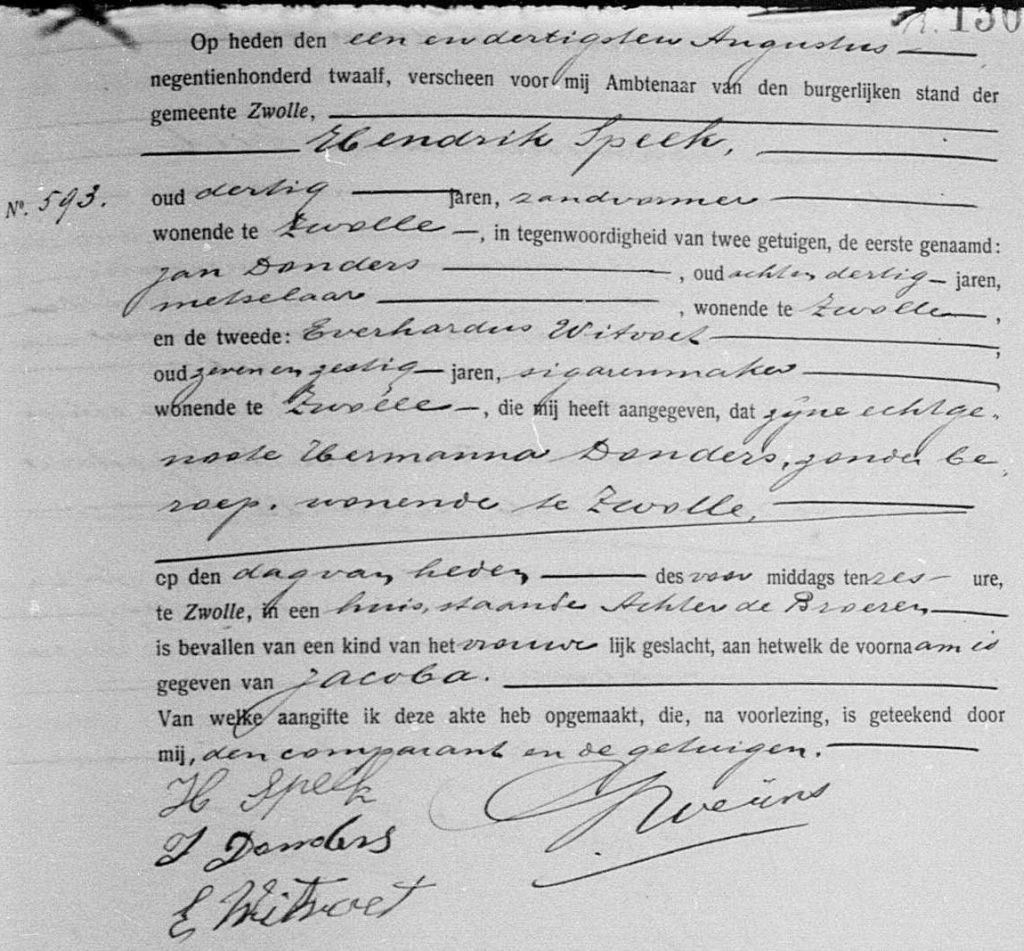 130
Op heden den een en dertigsten Augustus
negentienhonderd twaalf, verscheen voor mij Ambtenaar van den burgerlijken stand der
gemeente Zwolle,
Hendrik Speek,
No. 593.
oud dertig jaren, zandvormer
wonende te Zwolle, in tegenwoordigheid van twee getuigen, de eerste genaamd:
Jan Donders, oud acht en dertig jaren,
metselaar, wonende te Zwolle,
en de tweede: Everhardus Witvoet,
oud zeven en zestig jaren, sigarenmaker,
wonende te Zwolle, die mij heeft aangegeven, dat zijne echtge-
noote Hermanna Donders, zonder be-
roep, wonende te Zwolle,
op den dag van heden des voor middags ten zes ure,
te Zwolle, in een huis, staande Achter de Broeren
is bevallen van een kind van het vrouwe lijk geslacht, aan hetwelk de voornaam is
gegeven van Jacoba.
Van welke aangifte ik deze akte heb opgemaakt, die, na voorlezing, is geteekend door
mij, den comparant en de getuigen.
H Speek
J Donders
E Witvoet